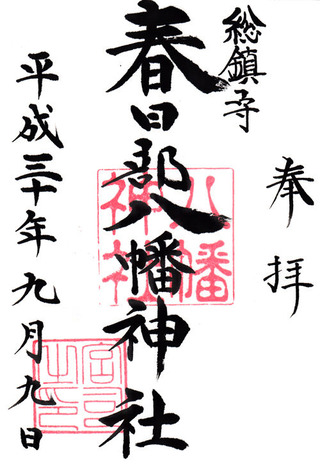 奉拝
総鎮守
春日部八幡神社
平成三十年九月九日
八幡
神社